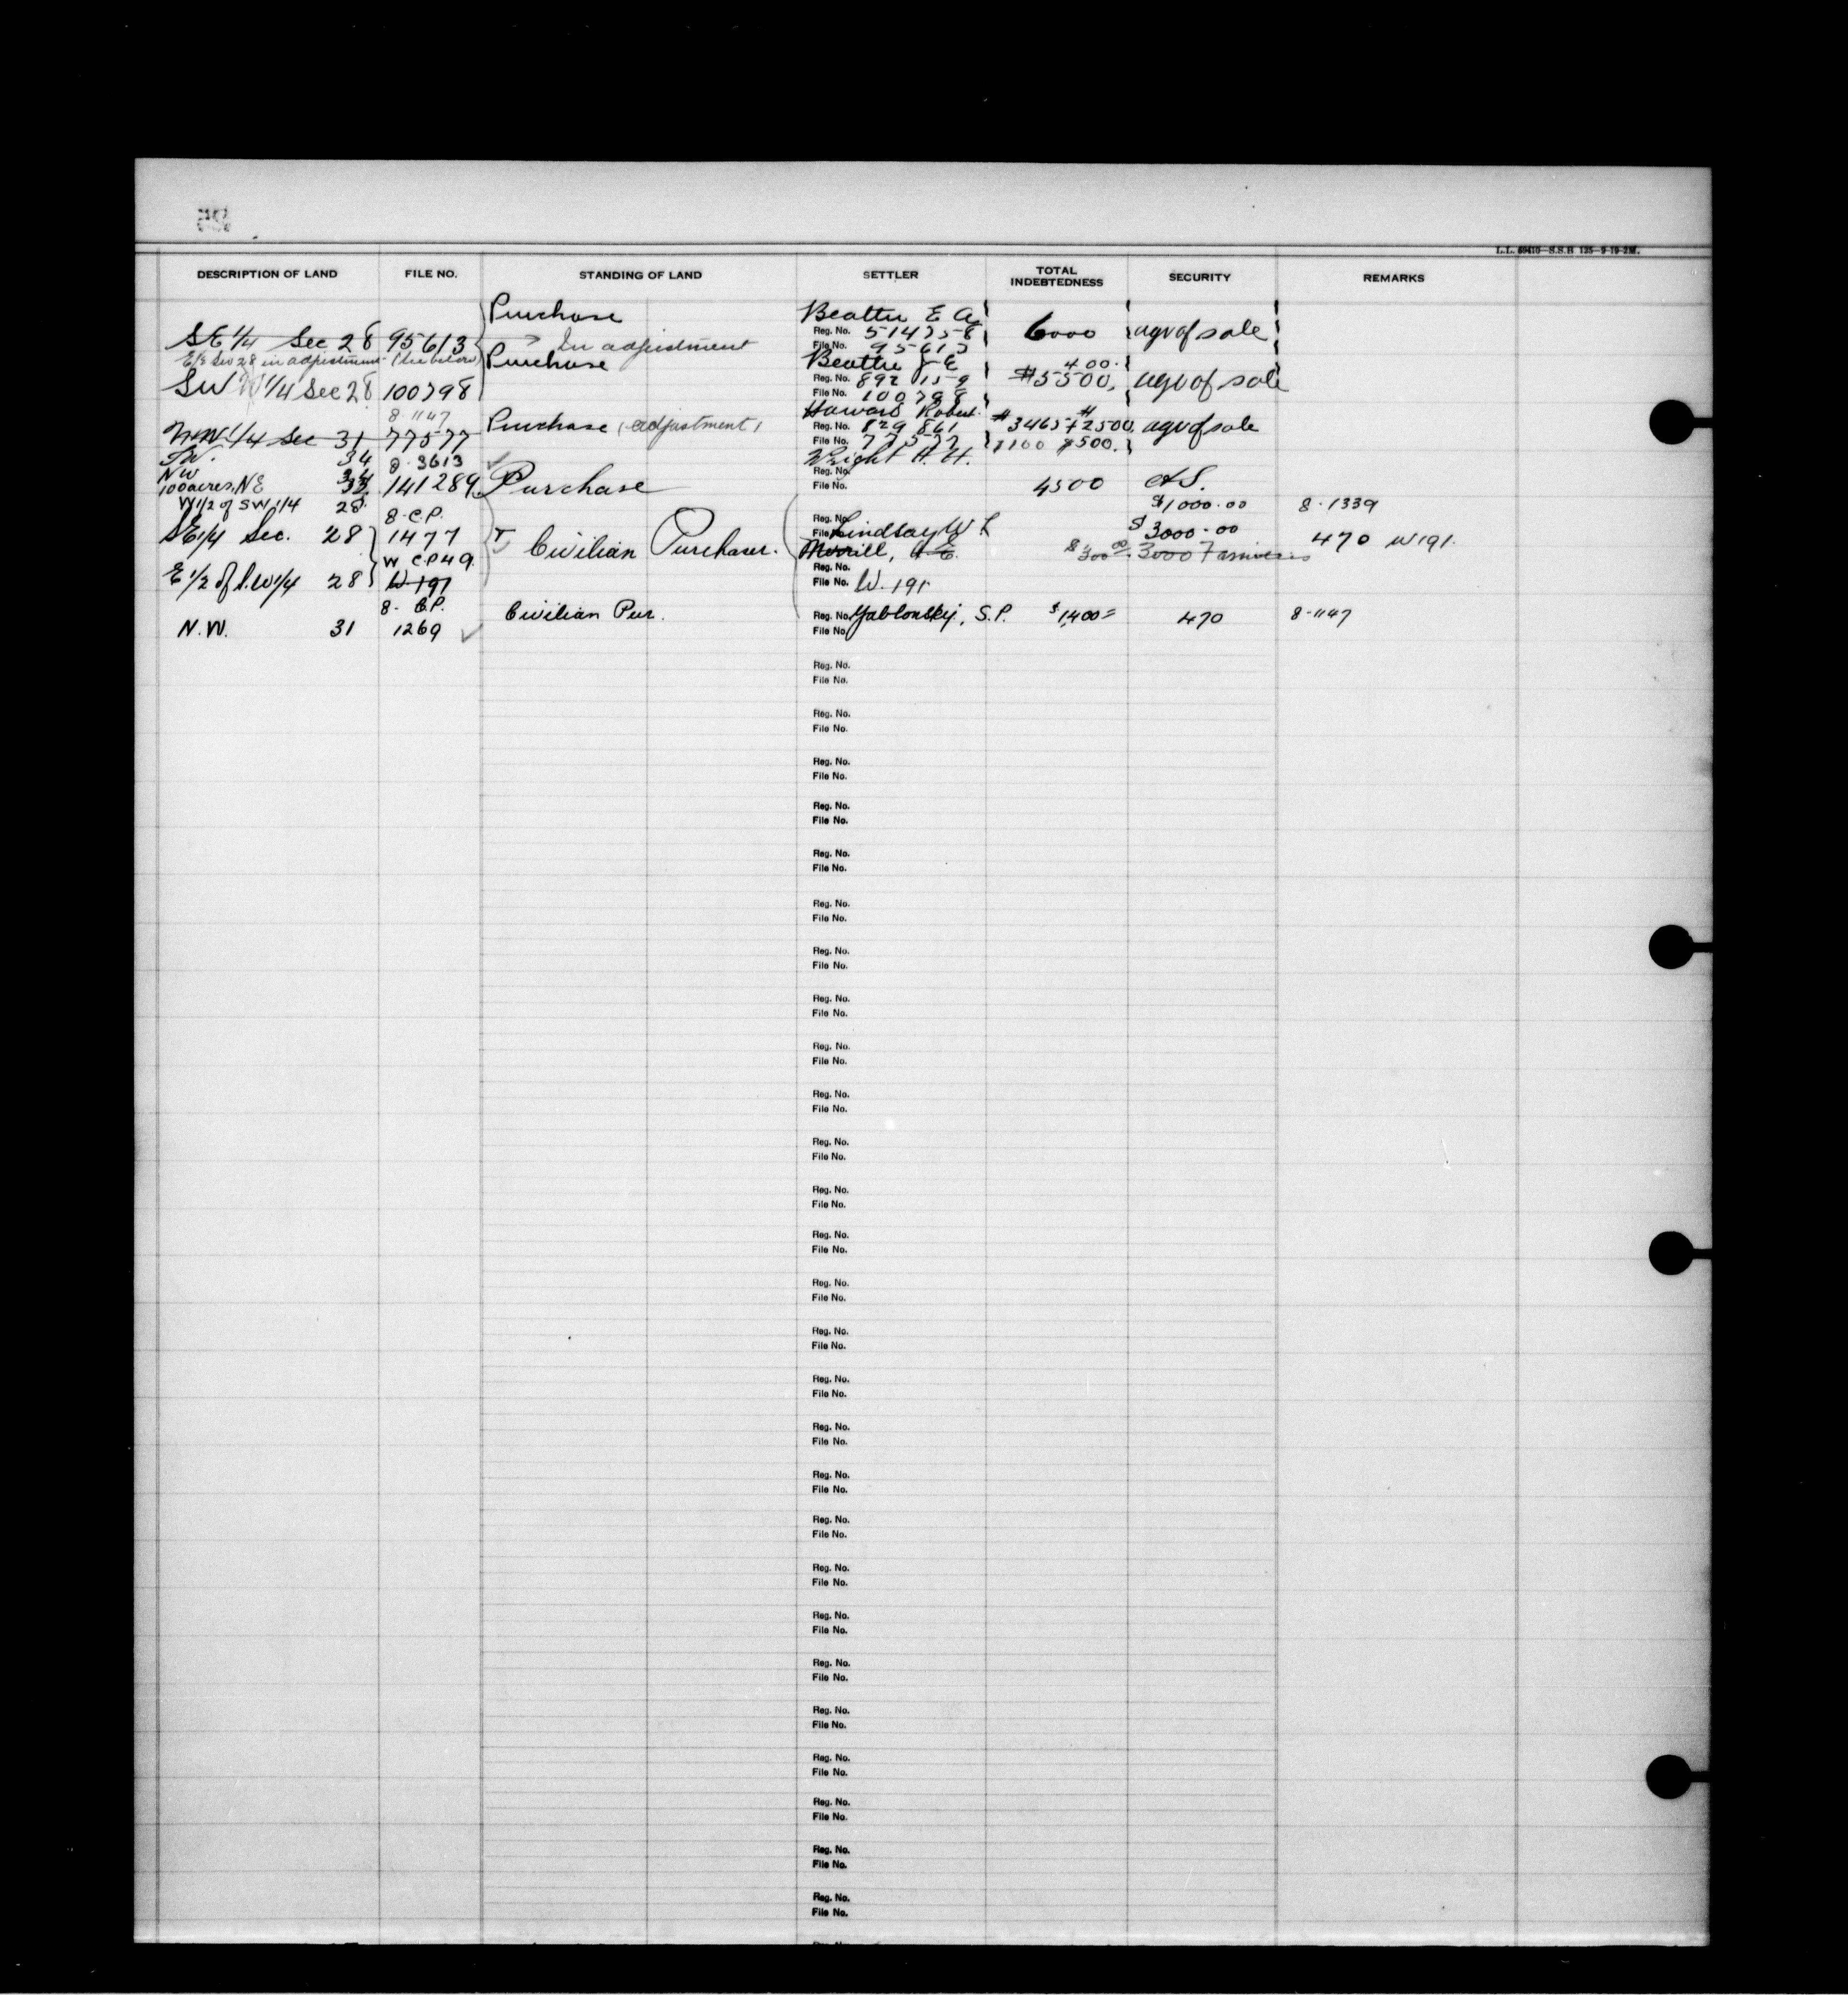 L.L. 69410—S.S.B 125—9-19-2M.
DESCRIPTION OF LAND FILE NO. STANDING OF LAND SETTLER TOTAL INDEBTEDNESS SECURITY REMARKS
Purchase Beattie E A
SE 1/4 Sec 28 95613 In adjustment Reg. No. 514758 6000 agr of sale
File No. 95613
E/2 Sw 28 in adjustment (see below) Purchase Beattie J E 400.
SW 1/4 Sec 28 100798 Reg. No. 892159 $5500. agr of sale
File No. 100798
8-1147 Howard Robert
NW 1/4 Sec 31 77577 Purchase (adjustment) Reg. No. 829861 $3465 + $2500. agr of sale
File No. 77577 $500.
SW. 34 8-3613 Wright H. H.
NW 34 Reg. No.
100 acres, NE 33 141289 Purchase File No. 4500 A S.
W 1/2 of SW 1/4 28 8-C.P. $1000.00 8-1339
SE 1/4 Sec. 28 1477 Civilian Purchaser. Reg. No.
File No. Lindsay W L $3000.00 470 W 191.
W CP49 Merrill, A E. $300.00 3000
Reg. No.
E 1/2 of S.W 1/4 28 W-191 File No. W. 191
8- C.P.
N.W. 31 1269 Civilian Pur. Reg. No. Yablonsky, S.P. $1,400= 470 8-1147
File No.
Reg. No.
File No.
Reg. No.
File No.
Reg. No.
File No.
Reg. No.
File No.
Reg. No.
File No.
Reg. No.
File No.
Reg. No.
File No.
Reg. No.
File No.
Reg. No.
File No.
Reg. No.
File No.
Reg. No.
File No.
Reg. No.
File No.
Reg. No.
File No.
Reg. No.
File No.
Reg. No.
File No.
Reg. No.
File No.
Reg. No.
File No.
Reg. No.
File No.
Reg. No.
File No.
Reg. No.
File No.
Reg. No.
File No.
Reg. No.
File No.
Reg. No.
File No.
Reg. No.
File No.
Reg. No.
File No.
Reg. No.
File No.
Reg. No.
File No.